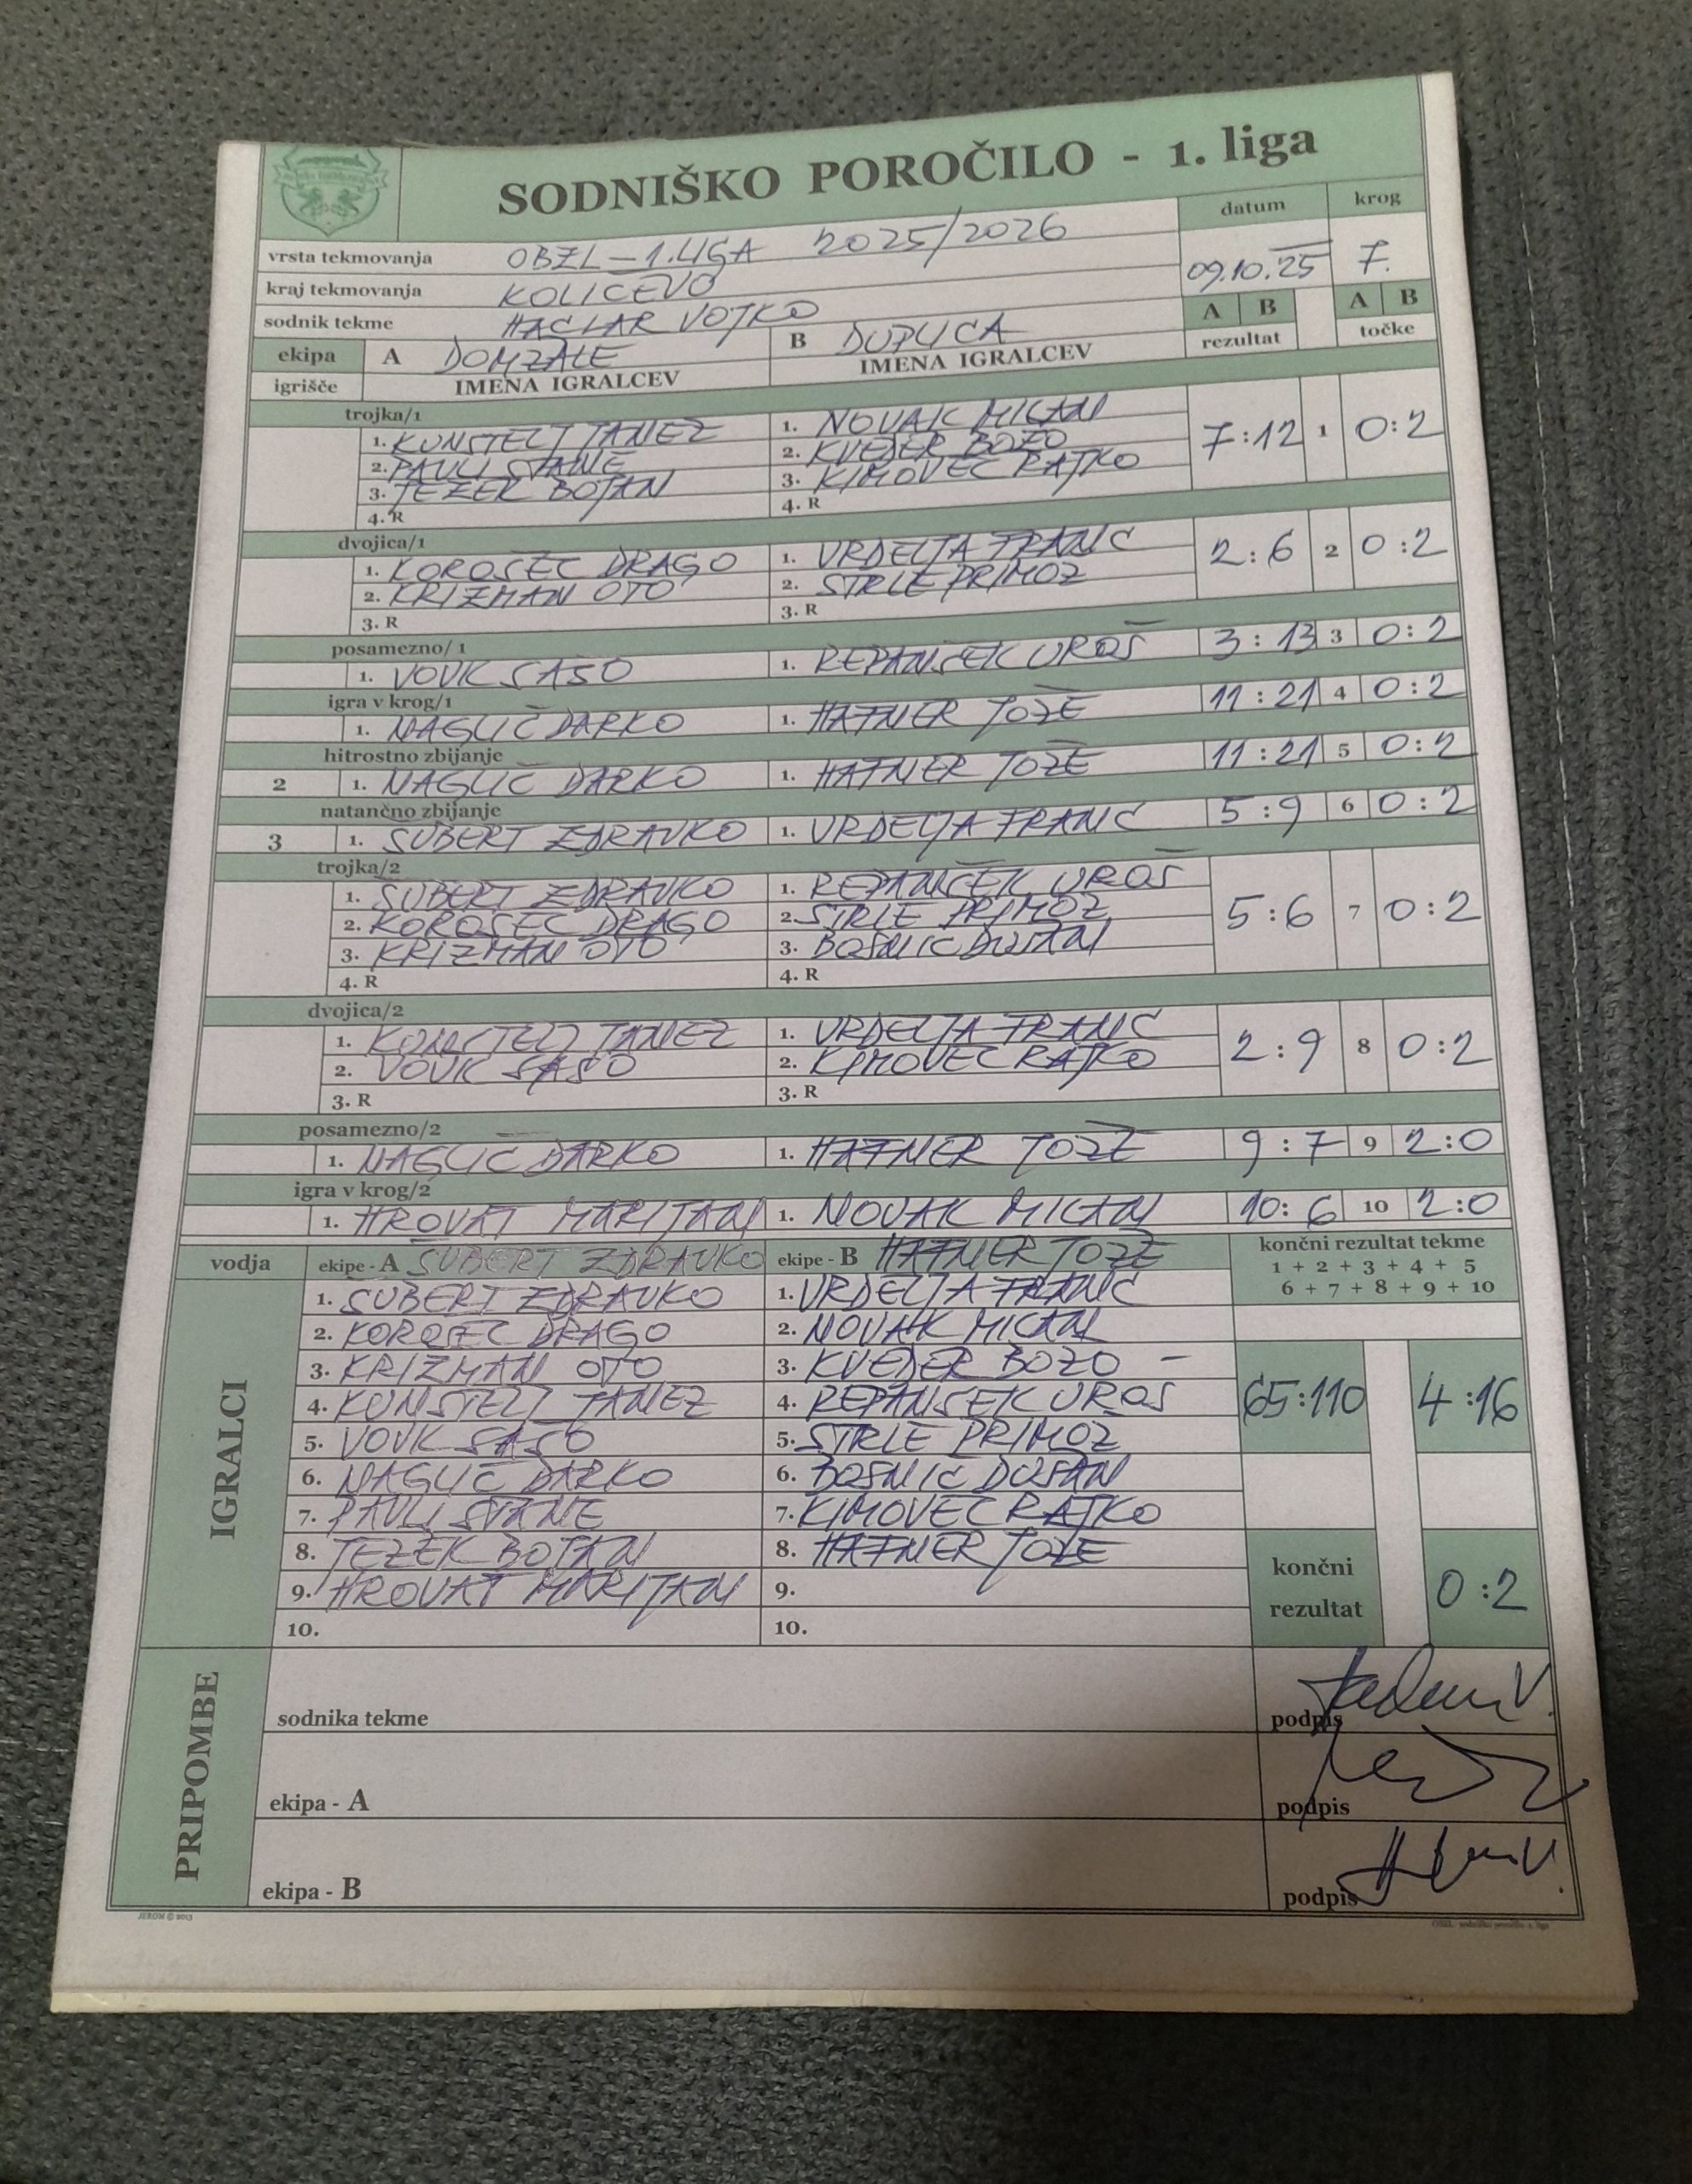 SODNIŠKO POROČILO - 1. liga
datum krog
vrsta tekmovanja OBZL - 1. LIGA 2025/2026 09.10.25 7.
kraj tekmovanja KOLIČEVO
sodnik tekme VOJKO
A B A B
rezultat točke
ekipa A DOMŽALE B DUPLICA
igrišče IMENA IGRALCEV IMENA IGRALCEV
trojka/1
1. KUNSTELJ JANEZ 1. NOVAK MILAN 7:12 1 0:2
2. PAVLI STANE 2. KVEDER BOZO
3. JEZEK BOJAN 3. KIMOVEC RAJKO
4. R 4. R
dvojica/1
1. KOROSEC DRAGO 1. URDELJA FRANC 2:6 2 0:2
2. KRIZMAN OTO 2. STRLE PRIMOZ
3. R 3. R
posamezno/ 1
1. VOVK SASO 1. REPANSEK UROŠ 3:13 3 0:2
igra v krog/1
1. NAGLIČ DARKO 1. HAFNER JOŽE 11:21 4 0:2
hitrostno zbijanje
2 1. NAGLIČ DARKO 1. HAFNER JOŽE 11:21 5 0:2
natančno zbijanje
3 1. SUBERT ZDRAVKO 1. URDELJA FRANC 5:9 6 0:2
trojka/2
1. SUBERT ZDRAVKO 1. REPANŠEK UROŠ 5:6 7 0:2
2. KOROSEC DRAGO 2. STRLE PRIMOZ
3. KRIZMAN OTO 3. BOSNIC DUSAN
4. R 4. R
dvojica/2
1. KONSTELJ JANEZ 1. URDELJA FRANC 2:9 8 0:2
2. VOVK SASO 2. KIMOVEC RAJKO
3. R 3. R
posamezno/2
1. NAGLIČ DARKO 1. HAFNER JOŽE 9:7 9 2:0
igra v krog/2
1. HROVAT MARIJAN 1. NOVAK MILAN 10:6 10 2:0
vodja ekipe - A SUBERT ZDRAVKO ekipe - B HAFNER JOŽE končni rezultat tekme
1 + 2 + 3 + 4 + 5
6 + 7 + 8 + 9 + 10
IGRALCI
1. SUBERT ZDRAVKO 1. URDELJA FRANC
2. KOROSEC DRAGO 2. NOVAK MILAN
3. KRIZMAN OTO 3. KVEDER BOZO -
4. KUNSTELJ JANEZ 4. REPANSEK UROS 65:110 4:16
5. VOVK SASO 5. STRLE PRIMOZ
6. NAGLIČ DARKO 6. BOSNIC DUSAN
7. PAVLI STANE 7. KIMOVEC RAJKO
8. JEZEK BOJAN 8. HAFNER JOZE
9. HROVAT MARIJAN 9.
10. 10.
končni rezultat 0:2
PRIPOMBE
sodnika tekme podpis
ekipa - A podpis
ekipa - B podpis
JEROM © 2013